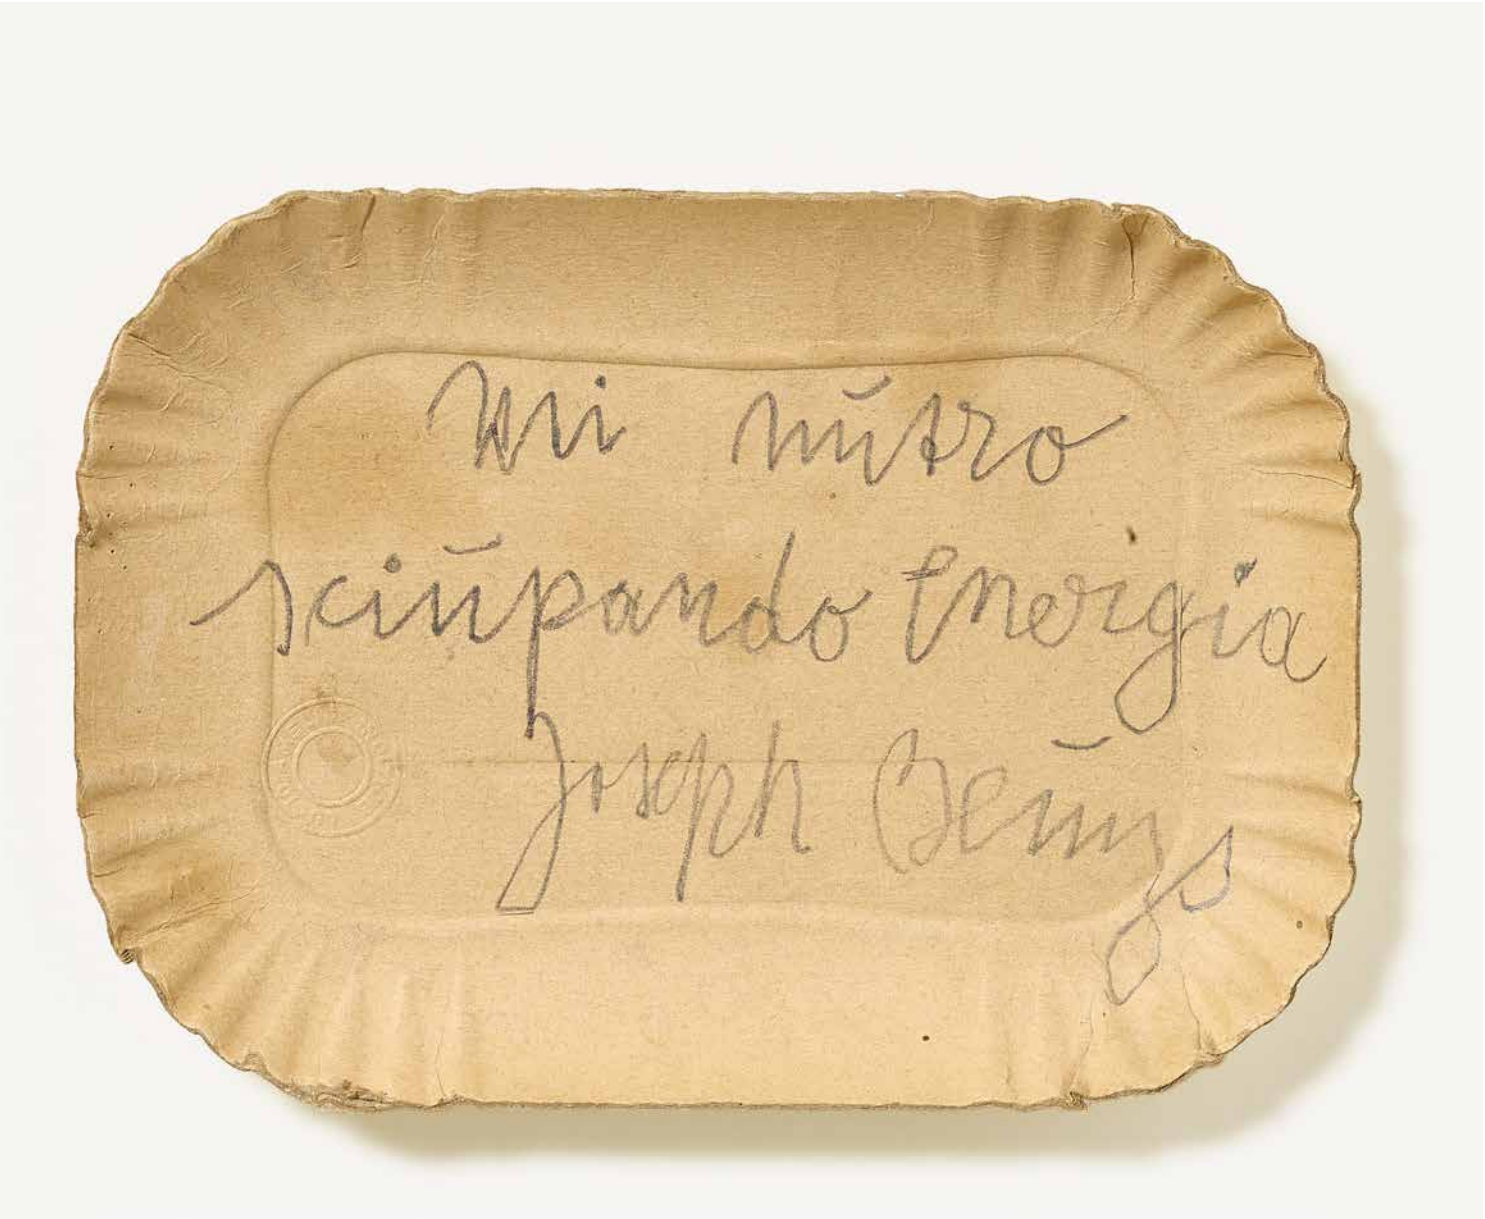 Mi nŭtro
sciŭpando Energia
Joseph Beŭys